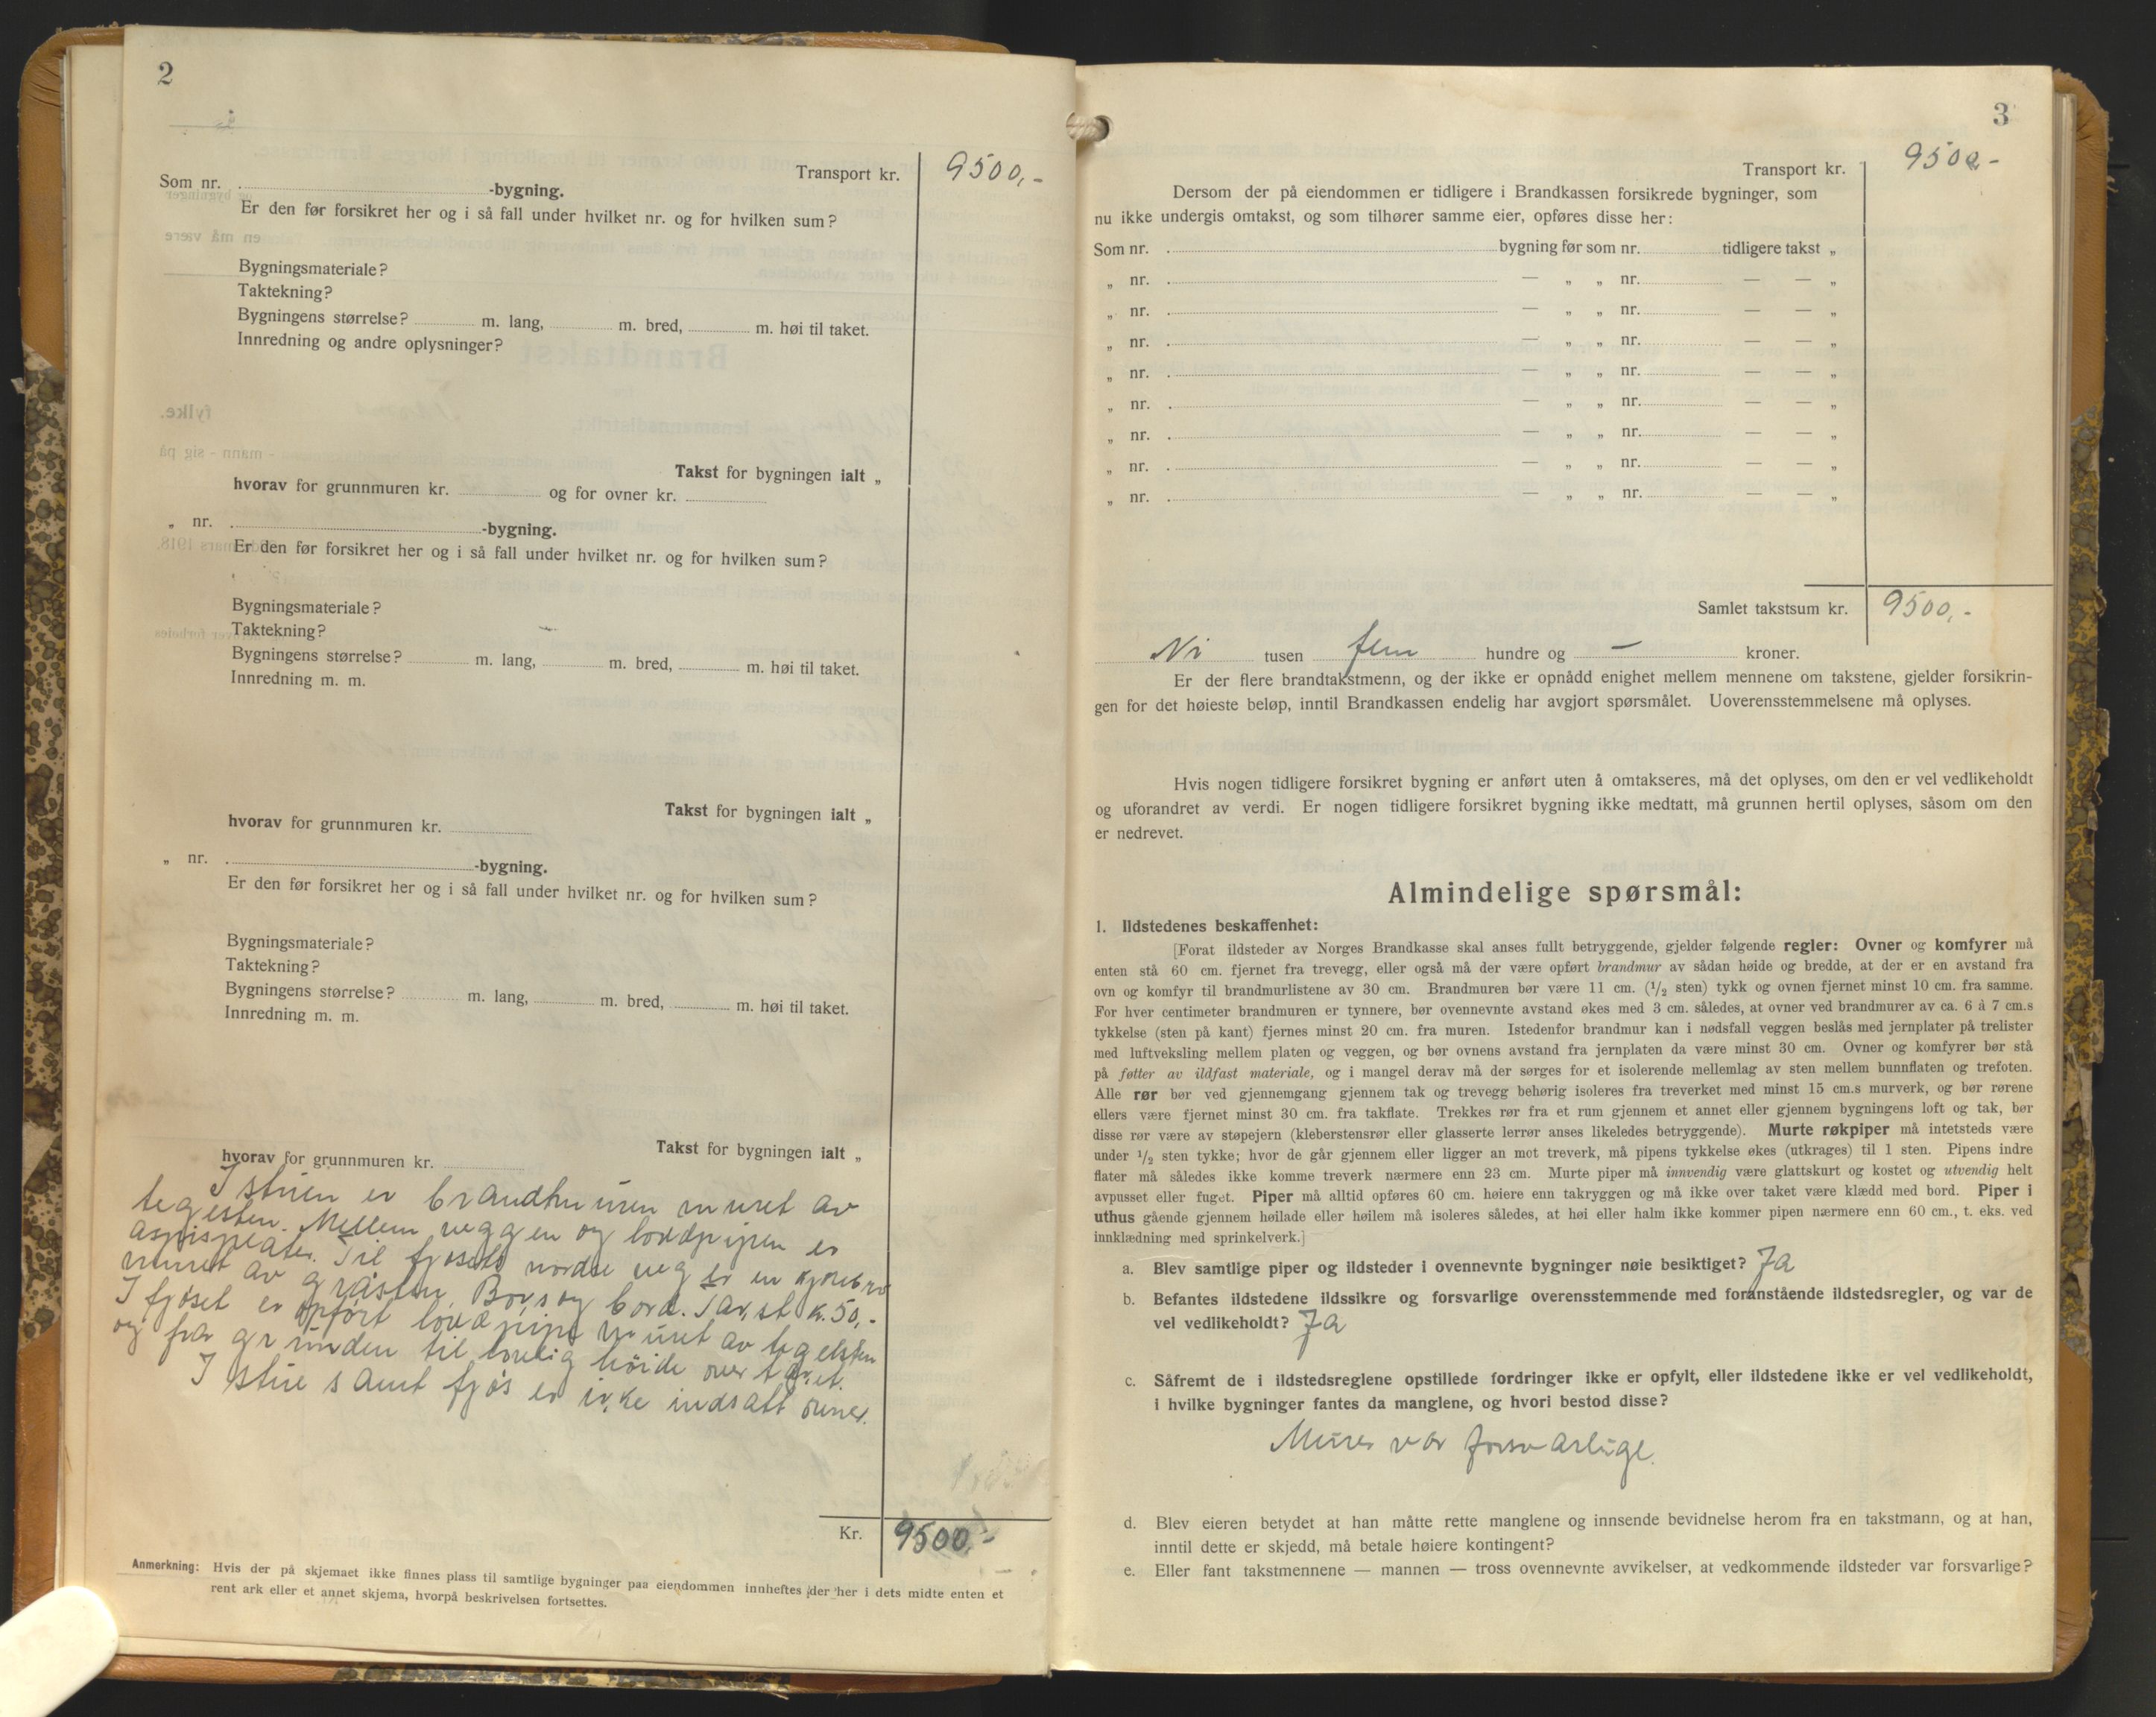 2
Transport kr. 9500,-
Som nr. -bygning.
Er den før forsikret her og i så fall under hvilket nr. og for hvilken sum?
Bygningsmateriale?
Taktekning?
Bygningens størrelse? m. lang, m. bred, m. høi til taket.
Innredning og andre oplysninger?
Takst for bygningen ialt „
hvorav for grunnmuren kr. og for ovner kr.
„ nr. -bygning.
Er den før forsikret her og i så fall under hvilket nr. og for hvilken sum?
Bygningsmateriale?
Taktekning?
Bygningens størrelse? m. lang, m. bred, m. høi til taket.
Innredning m. m.
Takst for bygningen ialt „
hvorav for grunnmuren kr.
„ nr. -bygning.
Er den før forsikret her og i så fall under hvilket nr. og for hvilken sum?
Bygningsmateriale?
Taktekning?
Bygningens størrelse? m. lang, m. bred, m. høi til taket.
Innredning m. m.
Takst for bygningen ialt „
hvorav for grunnmuren kr.
I stuen er brandmuren muret av
teglsten. Mellem veggen og lovdpipen er
Til fjøsets nordre veg er en kjörebro
muret av gråsten, og bord. k. 50,-
I fjöset er opført lovdpipe muret av teglsten
og fra grunden til lovlig höide over taket.
I stue samt fjös er ikke indsatt ovner.
Kr. 9500,-
Anmerkning: Hvis der på skjemaet ikke finnes plass til samtlige bygninger paa eiendommen innheftes der her i dets midte enten et
rent ark eller et annet skjema, hvorpå beskrivelsen fortsettes.
3
Transport kr. 9500,-
Dersom der på eiendommen er tidligere i Brandkassen forsikrede bygninger, som
nu ikke undergis omtakst, og som tilhører samme eier, opføres disse her:
Som nr. bygning før som nr. tidligere takst „
„ nr. — „ „ nr. — — „
„ nr. — „ „ nr. — — „
„ nr. — „ „ nr. — — „
„ nr. — „ „ nr. — — „
„ nr. — „ „ nr. — — „
„ nr. — „ „ nr. — — „
„ nr. — „ „ nr. — — „
„ nr. — „ „ nr. — — „
Samlet takstsum kr. 9500,-
Ni tusen fem hundre og — kroner.
Er der flere brandtakstmenn, og der ikke er opnådd enighet mellem mennene om takstene, gjelder forsikrin-
gen for det høieste beløp, inntil Brandkassen endelig har avgjort spørsmålet. Uoverensstemmelsene må oplyses.
Hvis nogen tidligere forsikret bygning er anført uten å omtakseres, må det oplyses, om den er vel vedlikeholdt
og uforandret av verdi. Er nogen tidligere forsikret bygning ikke medtatt, må grunnen hertil oplyses, såsom om den
er nedrevet.
Almindelige spørsmål:
1. Ildstedenes beskaffenhet:
[Forat ildsteder av Norges Brandkasse skal anses fullt betryggende, gjelder følgende regler: Ovner og komfyrer må
enten stå 60 cm. fjernet fra trevegg, eller også må der være opført brandmur av sådan høide og bredde, at der er en avstand fra
ovn og komfyr til brandmurlistene av 30 cm. Brandmuren bør være 11 cm. (1/2 sten) tykk og ovnen fjernet minst 10 cm. fra samme.
For hver centimeter brandmuren er tynnere, bør ovennevnte avstand økes med 3 cm. således, at ovner ved brandmurer av ca. 6 à 7 cm.s
tykkelse (sten på kant) fjernes minst 20 cm. fra muren. Istedenfor brandmur kan i nødsfall veggen beslås med jernplater på trelister
med luftveksling mellem platen og veggen, og bør ovnens avstand fra jernplaten da være minst 30 cm. Ovner og komfyrer bør stå
på føtter av ildfast materiale, og i mangel derav må der sørges for et isolerende mellemlag av sten mellem bunnflaten og trefoten.
Alle rør bør ved gjennemgang gjennem tak og trevegg behørig isoleres fra treverket med minst 15 cm.s murverk, og bør rørene
ellers være fjernet minst 30 cm. fra takflate. Trekkes rør fra et rum gjennem et annet eller gjennem bygningens loft og tak, bør
disse rør være av støpejern (kleberstensrør eller glasserte lerrør anses likeledes betryggende). Murte røkpiper må intetsteds være
under 1/2 sten tykke; hvor de går gjennem eller ligger an mot treverk, må pipens tykkelse økes (utkrages) til 1 sten. Pipens indre
flater må således ikke komme treverk nærmere enn 23 cm. Murte piper må innvendig være glattskurt og kostet og utvendig helt
avpusset eller fuget. Piper må alltid opføres 60 cm. høiere enn takryggen og må ikke over taket være klædd med bord. Piper i
uthus gående gjennem høilade eller høilem må isoleres således, at høi eller halm ikke kommer pipen nærmere enn 60 cm., t. eks. ved
innklædning med sprinkelverk.]
a. Blev samtlige piper og ildsteder i ovennevnte bygninger nøie besiktiget? Ja
b. Befantes ildstedene ildssikre og forsvarlige overensstemmende med foranstående ildstedsregler, og var de
vel vedlikeholdt? Ja
c. Såfremt de i ildstedsreglene opstillede fordringer ikke er opfylt, eller ildstedene ikke er vel vedlikeholdt,
i hvilke bygninger fantes da manglene, og hvori bestod disse?
Murer var forsvarlige.
d. Blev eieren betydet at han måtte rette manglene og innsende bevidnelse herom fra en takstmann, og at han,
inntil dette er skjedd, må betale høiere kontingent?
e. Eller fant takstmennene — mannen — tross ovennevnte avvikelser, at vedkommende ildsteder var forsvarlige?